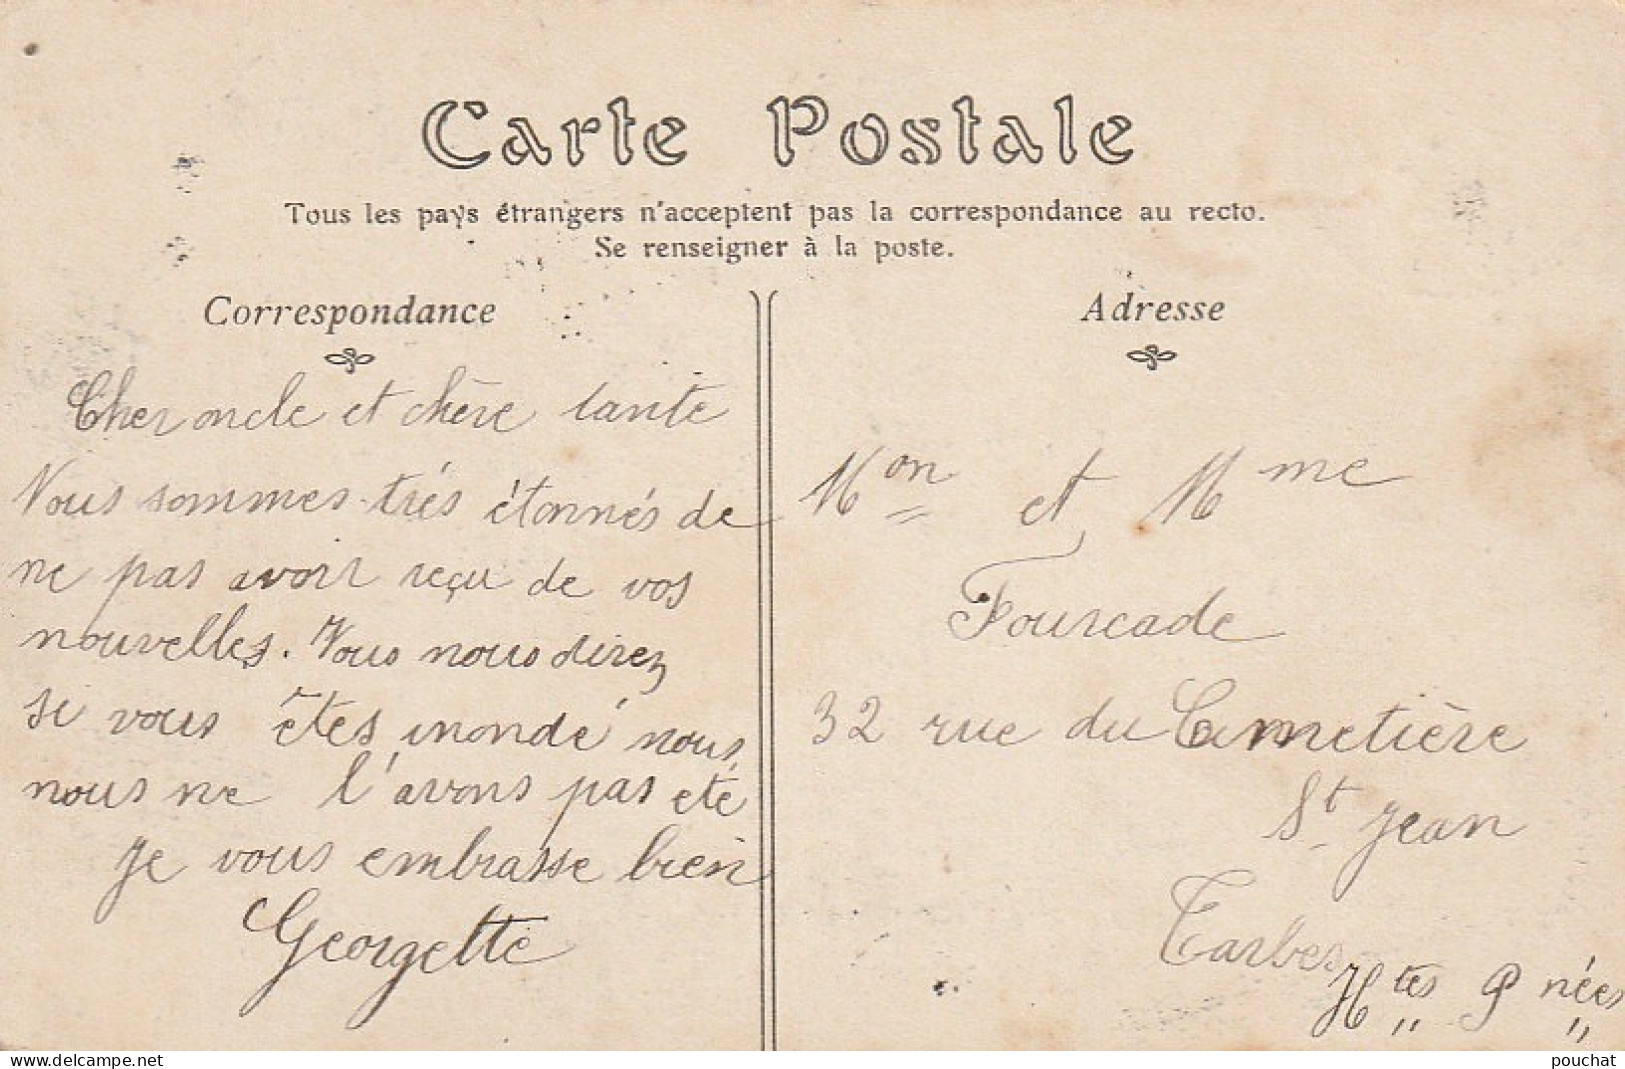 Carte Postale
Tous les pays étrangers n'acceptent pas la correspondance au recto.
Se renseigner à la poste.
Correspondance
Cher oncle et chère tante
Nous sommes très étonnés de
ne pas avoir reçu de vos
nouvelles. Vous nous direz
si vous êtes inondé nous,
nous ne l'avons pas eté
Je vous embrasse bien
Georgette
Adresse
Mon et Mme
Fourcade
32 rue du Cimetière
St Jean
Tarbes
Htes Pnées
delcampe.net
pouchat